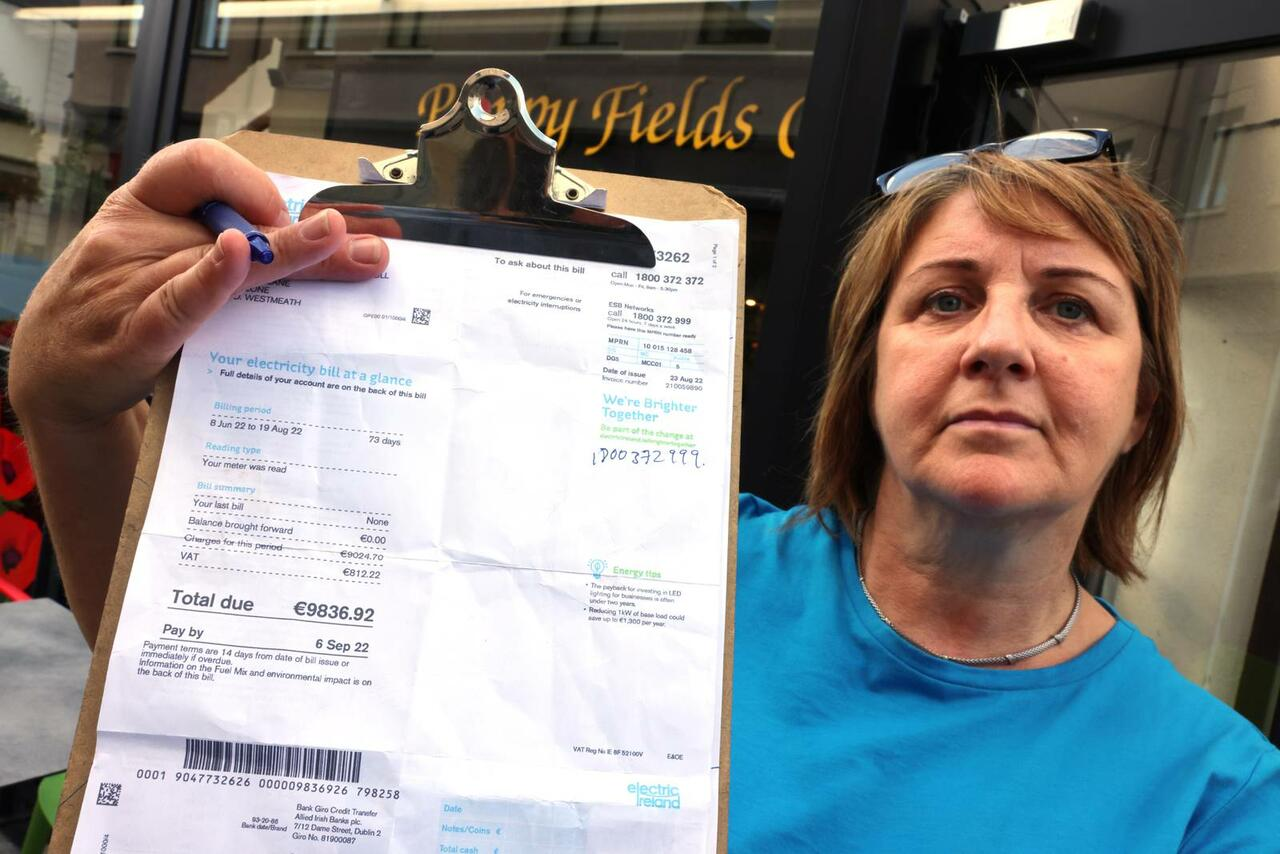 Poppy Fields C
ectri
3262
To ask about this bill
call 1800 372 372
Open Mon - Fri, 8am - 5:30pm
Page 1 of 2
For emergencies or
electricity interruptions
ESB Networks
call 1800 372 999
Open 24 hours, 7 days a week
Please have this MPRN number ready
LANE
ONE
O. WESTMEATH
MPRN 10 015 128 458
DG5 MCC01 5
Date of issue 23 Aug 22
Invoice number 210059890
Your electricity bill at a glance
> Full details of your account are on the back of this bill
We're Brighter
Together
Be part of the change at
1800372999.
Billing period
8 Jun 22 to 19 Aug 22 73 days
Reading type
Your meter was read
Bill summary
Your last bill None
Balance brought forward €0.00
Charges for this period €9024.70
VAT €812.22
Total due €9836.92
Pay by 6 Sep 22
Payment terms are 14 days from date of bill issue or
immediately if overdue.
Information on the Fuel Mix and environmental impact is on
the back of this bill.
Energy tips
• The payback for investing in LED
lighting for businesses is often
under two years.
• Reducing 1kW of base load could
save up to €1,300 per year.
VAT Reg No IE 8F52100V E&OE
0001 9047732626 000009836926 798258
electric
Ireland
93-20-86
Bank date/Brand
Bank Giro Credit Transfer
Allied Irish Banks plc.
7/12 Dame Street, Dublin 2
Giro No. 81900087
Date
Notes/Coins €
Total cash €